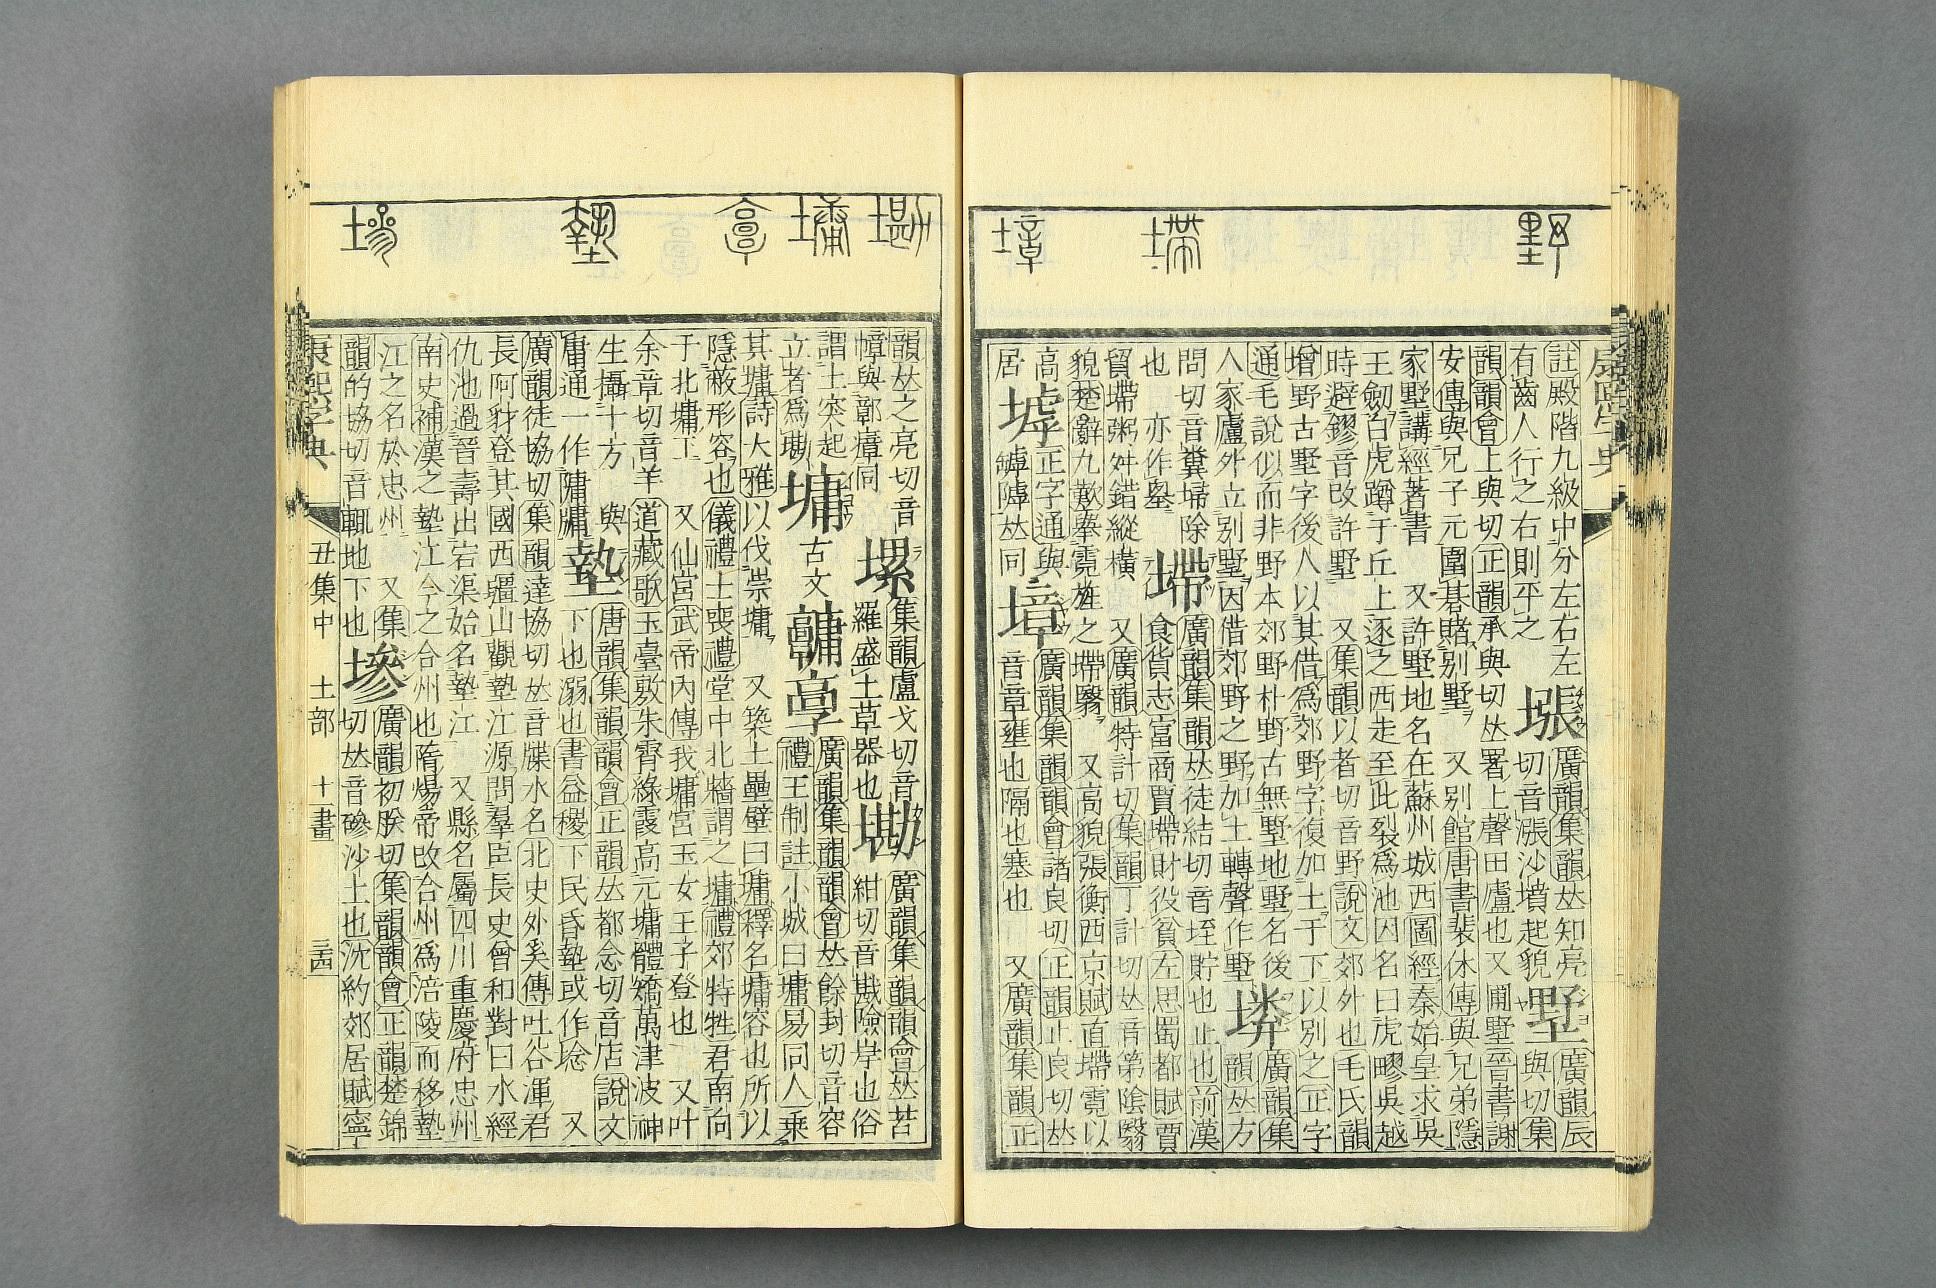 康熙字典
野 墆 墇
註殿階九級中分左右左
有齒人行之右則平之
墇
廣韻集韻𠀤知亮
切音漲沙墳起貌
墅
廣韻辰
與切集
韻韻會上與切正韻承與切𠀤署上聲田廬也又圃墅晉書謝
安傳與兄子元圍棊賭別墅 又別館唐書裴休傳與兄弟隱
家墅講經著書 又許墅地名在蘇州城西圖經秦始皇求吳
王劒白虎蹲于丘上逐之西走至此裂爲池因名曰虎疁吳越
時避鏐音改許墅 又集韻以者切音野說文郊外也毛氏韻
增野古墅字後人以其借爲郊野字復加土于下以別之正字
通毛說似而非野本郊野朴野古無墅地墅名後
人家廬外立別墅因借郊野之野加土轉聲作墅
墣
廣韻集
韻𠀤方
問切音糞埽除
也 亦作𡊅
墆
廣韻集韻𠀤徒結切音垤貯也止也前漢
食貨志富商賈墆財役貧左思蜀都賦賈
貿墆鬻舛錯縱橫 又廣韻特計切集韻丁計切𠀤音第隂翳
貌楚辭九歎舉霓旌之墆翳 又高貌張衡西京賦直墆霓以
高
居
墟
正字通與
罅𨻶𠀤同
墇
廣韻集韻韻會諸良切正韻止良切𠀤
音章壅也隔也塞也 又廣韻集韻正
勘 墉 𩫖 墊 墋
韻𠀤之亮切音
嶂與鄣瘴同
螺
集韻盧戈切音
羅盛土草器也
墈
廣韻集韻韻會𠀤苦
紺切音勘險岸也俗
謂土突起
立者爲墈
墉
古文
𩫏𩫖
廣韻集韻韻會𠀤餘封切音容
禮王制註小城曰墉易同人乘
其墉詩大雅以伐崇墉 又築土壘壁曰墉釋名墉容也所以
隱蔽形容也儀禮士喪禮堂中北牆謂之墉禮郊特牲君南向
于北墉下 又仙宮武帝內傳我墉宮玉女王子登也 又叶
余章切音羊道藏歌玉臺敷朱霄綠霞高元墉體矯萬津波神
生攝十方 與
庸通一作𨻫牗
墊
唐韻集韻韻會正韻𠀤都念切音店說文
下也溺也書益稷下民昏墊或作埝 又
廣韻徒協切集韻達協切𠀤音牒水名北史外奚傳吐谷渾君
長阿豺登其國西疆山觀墊江源問羣臣長史曾和對曰水經
仇池過晉壽出宕渠始名墊江 又縣名屬四川重慶府忠州
南史補漢之墊江今之合州也隋煬帝改合州爲涪陵而移墊
江之名於忠州 又集
韻的協切音輒地下也
墋
廣韻初朕切集韻韻會正韻楚錦
切𠀤音磣沙土也沈約郊居賦寧
康熙字典
丑集中 土部 十一畫 三四